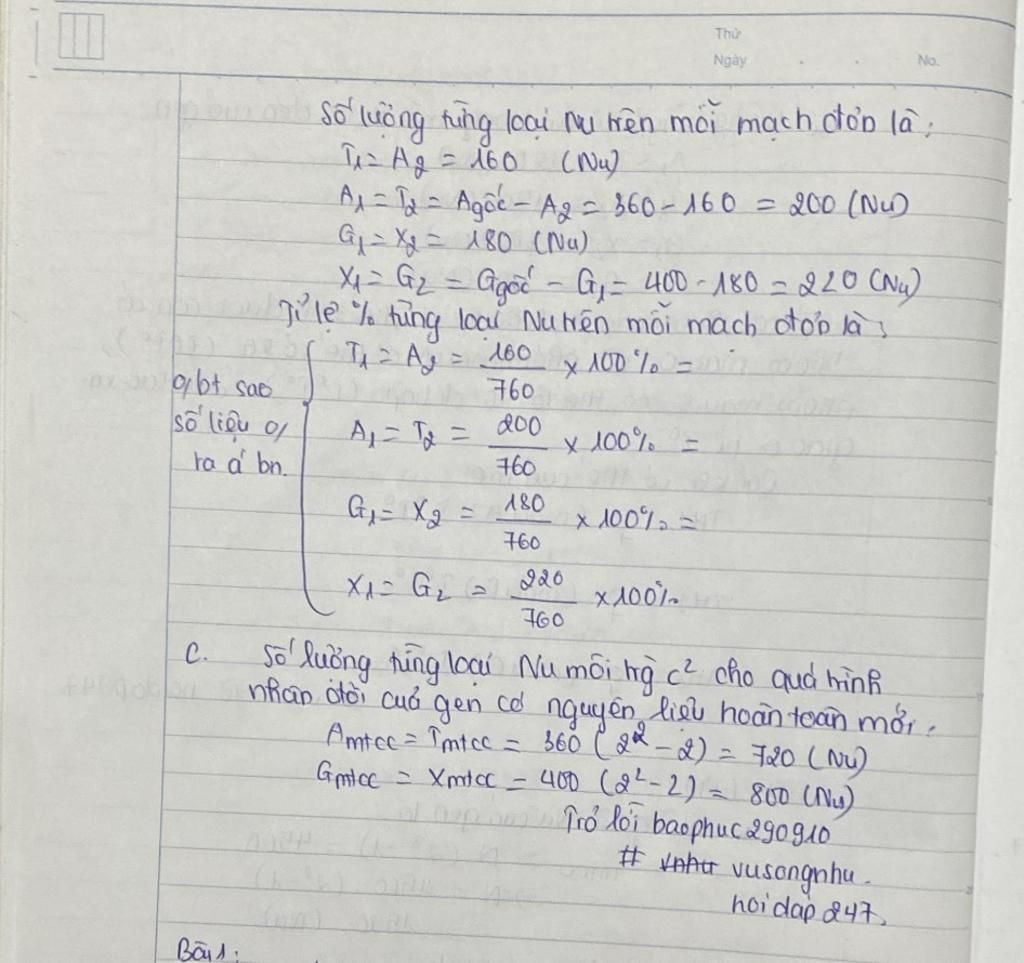 Thứ
Ngày . . No.
Số lượng từng loại Nu trên mỗi mạch đơn là:
T₁ = A₂ = 160 (Nu)
A₁ = T₂ = Agốc - A₂ = 360 - 160 = 200 (Nu)
G₁ = X₂ = 180 (Nu)
X₁ = G₂ = Ggốc - G₁ = 400 - 180 = 220 (Nu)
Tỉ lệ % từng loại Nu trên mỗi mạch đơn là:
T₁ = A₂ = 160/760 x 100% =
A₁ = T₂ = 200/760 x 100% =
G₁ = X₂ = 180/760 x 100% =
X₁ = G₂ = 220/760 x 100%
o, bt sao
số liệu o,
ra á bn.
C. Số lượng từng loại Nu môi trg c² cho quá trình
nhân đôi cuả gen có nguyên liệu hoàn toàn mới:
Amtcc = Tmtcc = 360 (2² - 2) = 720 (Nu)
Gmtcc = Xmtcc = 400 (2² - 2) = 800 (Nu)
Trả lời baophuc290910
# vusongnhu.
hoidap247.
Bài 1: